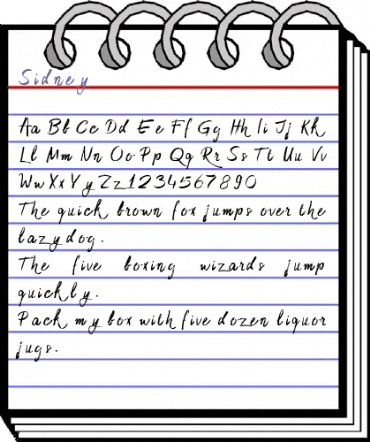 Sidney
Aa Bb Cc Dd Ee Ff Gg Hh Ii Jj Kk
Ll Mm Nn Oo Pp Qq Rr Ss Tt Uu Vv
Ww Xx Y y Zz 1234567890
The quick brown fox jumps over the
lazy dog.
The five boxing wizards jump
quickly.
Pack my box with five dozen liquor
jugs.